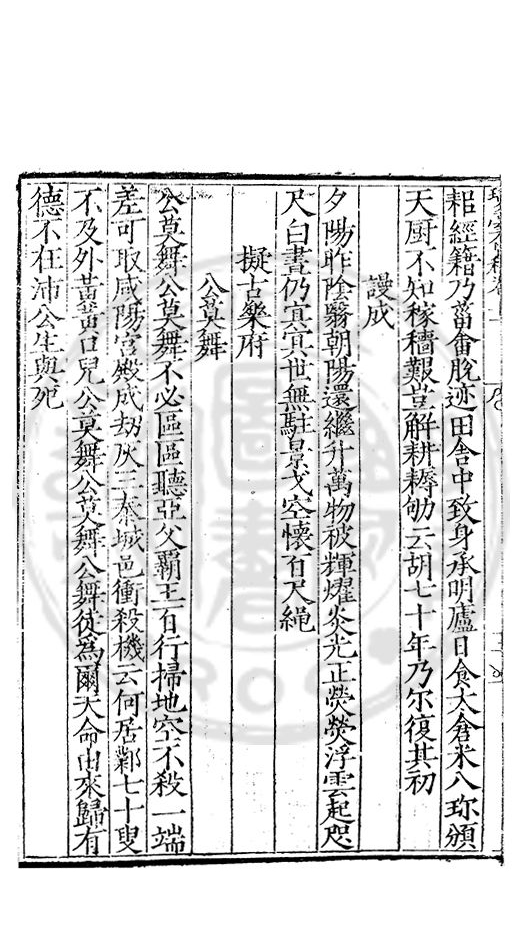 耝經籍乃菑畬脫迹田舍中致身承明廬日食太倉米八珎頒
天厨不知稼穡艱豈解耕耨劬云胡七十年乃尓復其初
謾成
夕陽昨陰翳朝陽還繼升萬物被輝燿炎光正熒熒浮雲起咫
尺白晝仍冥冥世無駐景戈空懷百尺繩
擬古樂府
公莫舞
公莫舞公莫舞不必區區聽亞父霸王百行掃地空不殺一端
差可取咸陽宮殿成劫灰三秦城邑衝殺機云何居鄛七十叟
不及外黃黃口兒公莫舞公莫舞公舞徒為爾天命由來歸有
德不在沛公生與死